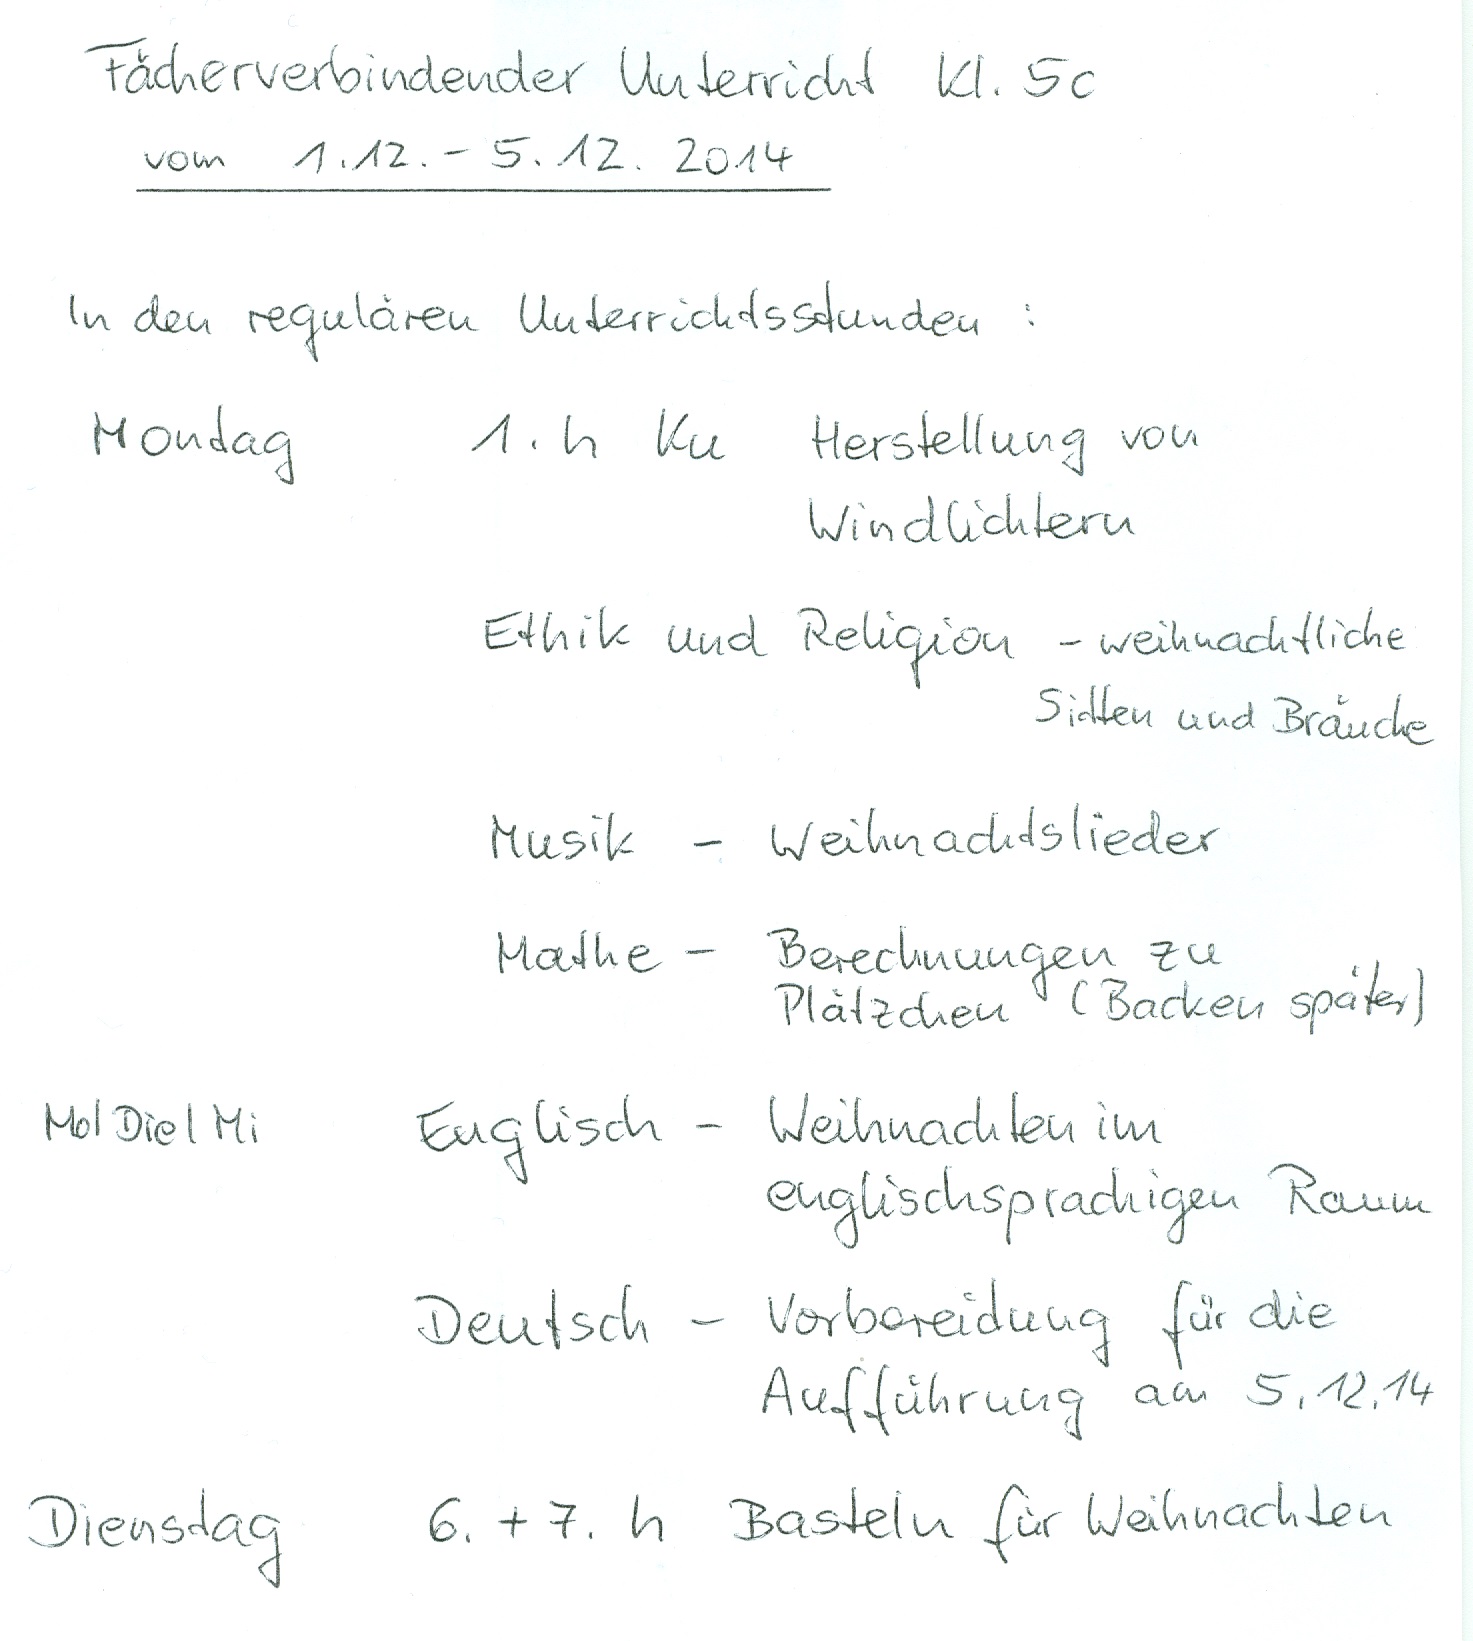 Fächerverbindender Unterricht Kl. 5c
vom 1.12. - 5.12. 2014
In den regulären Unterrichtsstunden :
Montag 1. h Ku Herstellung von
Windlichtern
Ethik und Religion - weihnachtliche
Sitten und Bräuche
Musik - Weihnachtslieder
Mathe - Berechnungen zu
Plätzchen (Backen später)
Mo/Die/Mi Englisch - Weihnachten im
englischsprachigen Raum
Deutsch - Vorbereitung für die
Aufführung am 5.12.14
Dienstag 6. + 7. h Basteln für Weihnachten